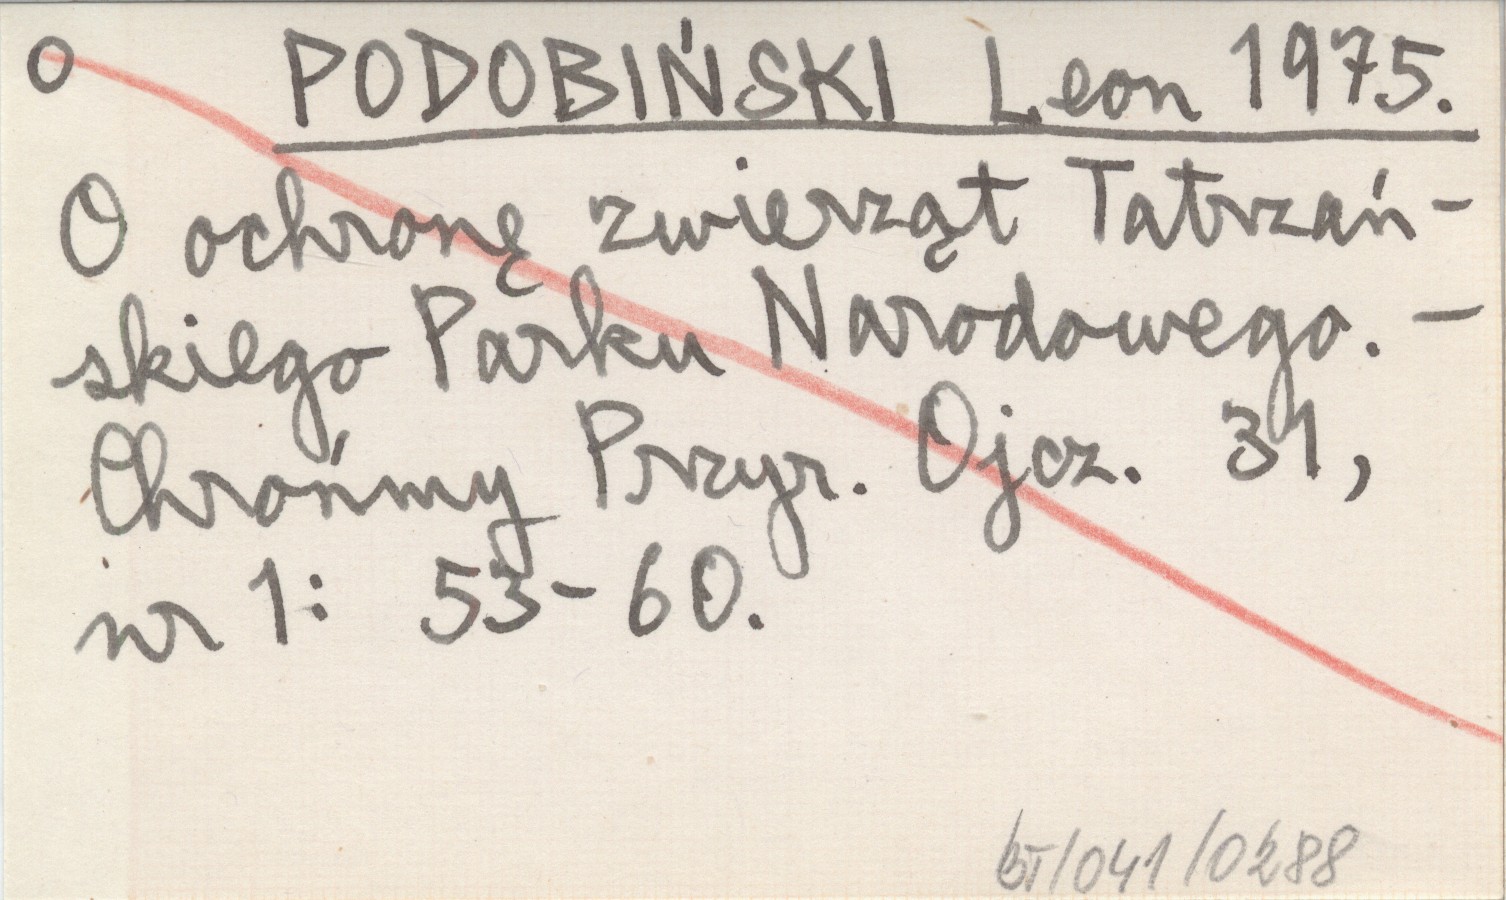 O PODOBIŃSKI Leon 1975.
O ochronę zwierząt Tatrzań-
skiego Parku Narodowego. -
Chrońmy Przyr. Ojcz. 31,
nr 1: 53-60.
BT/041/0288